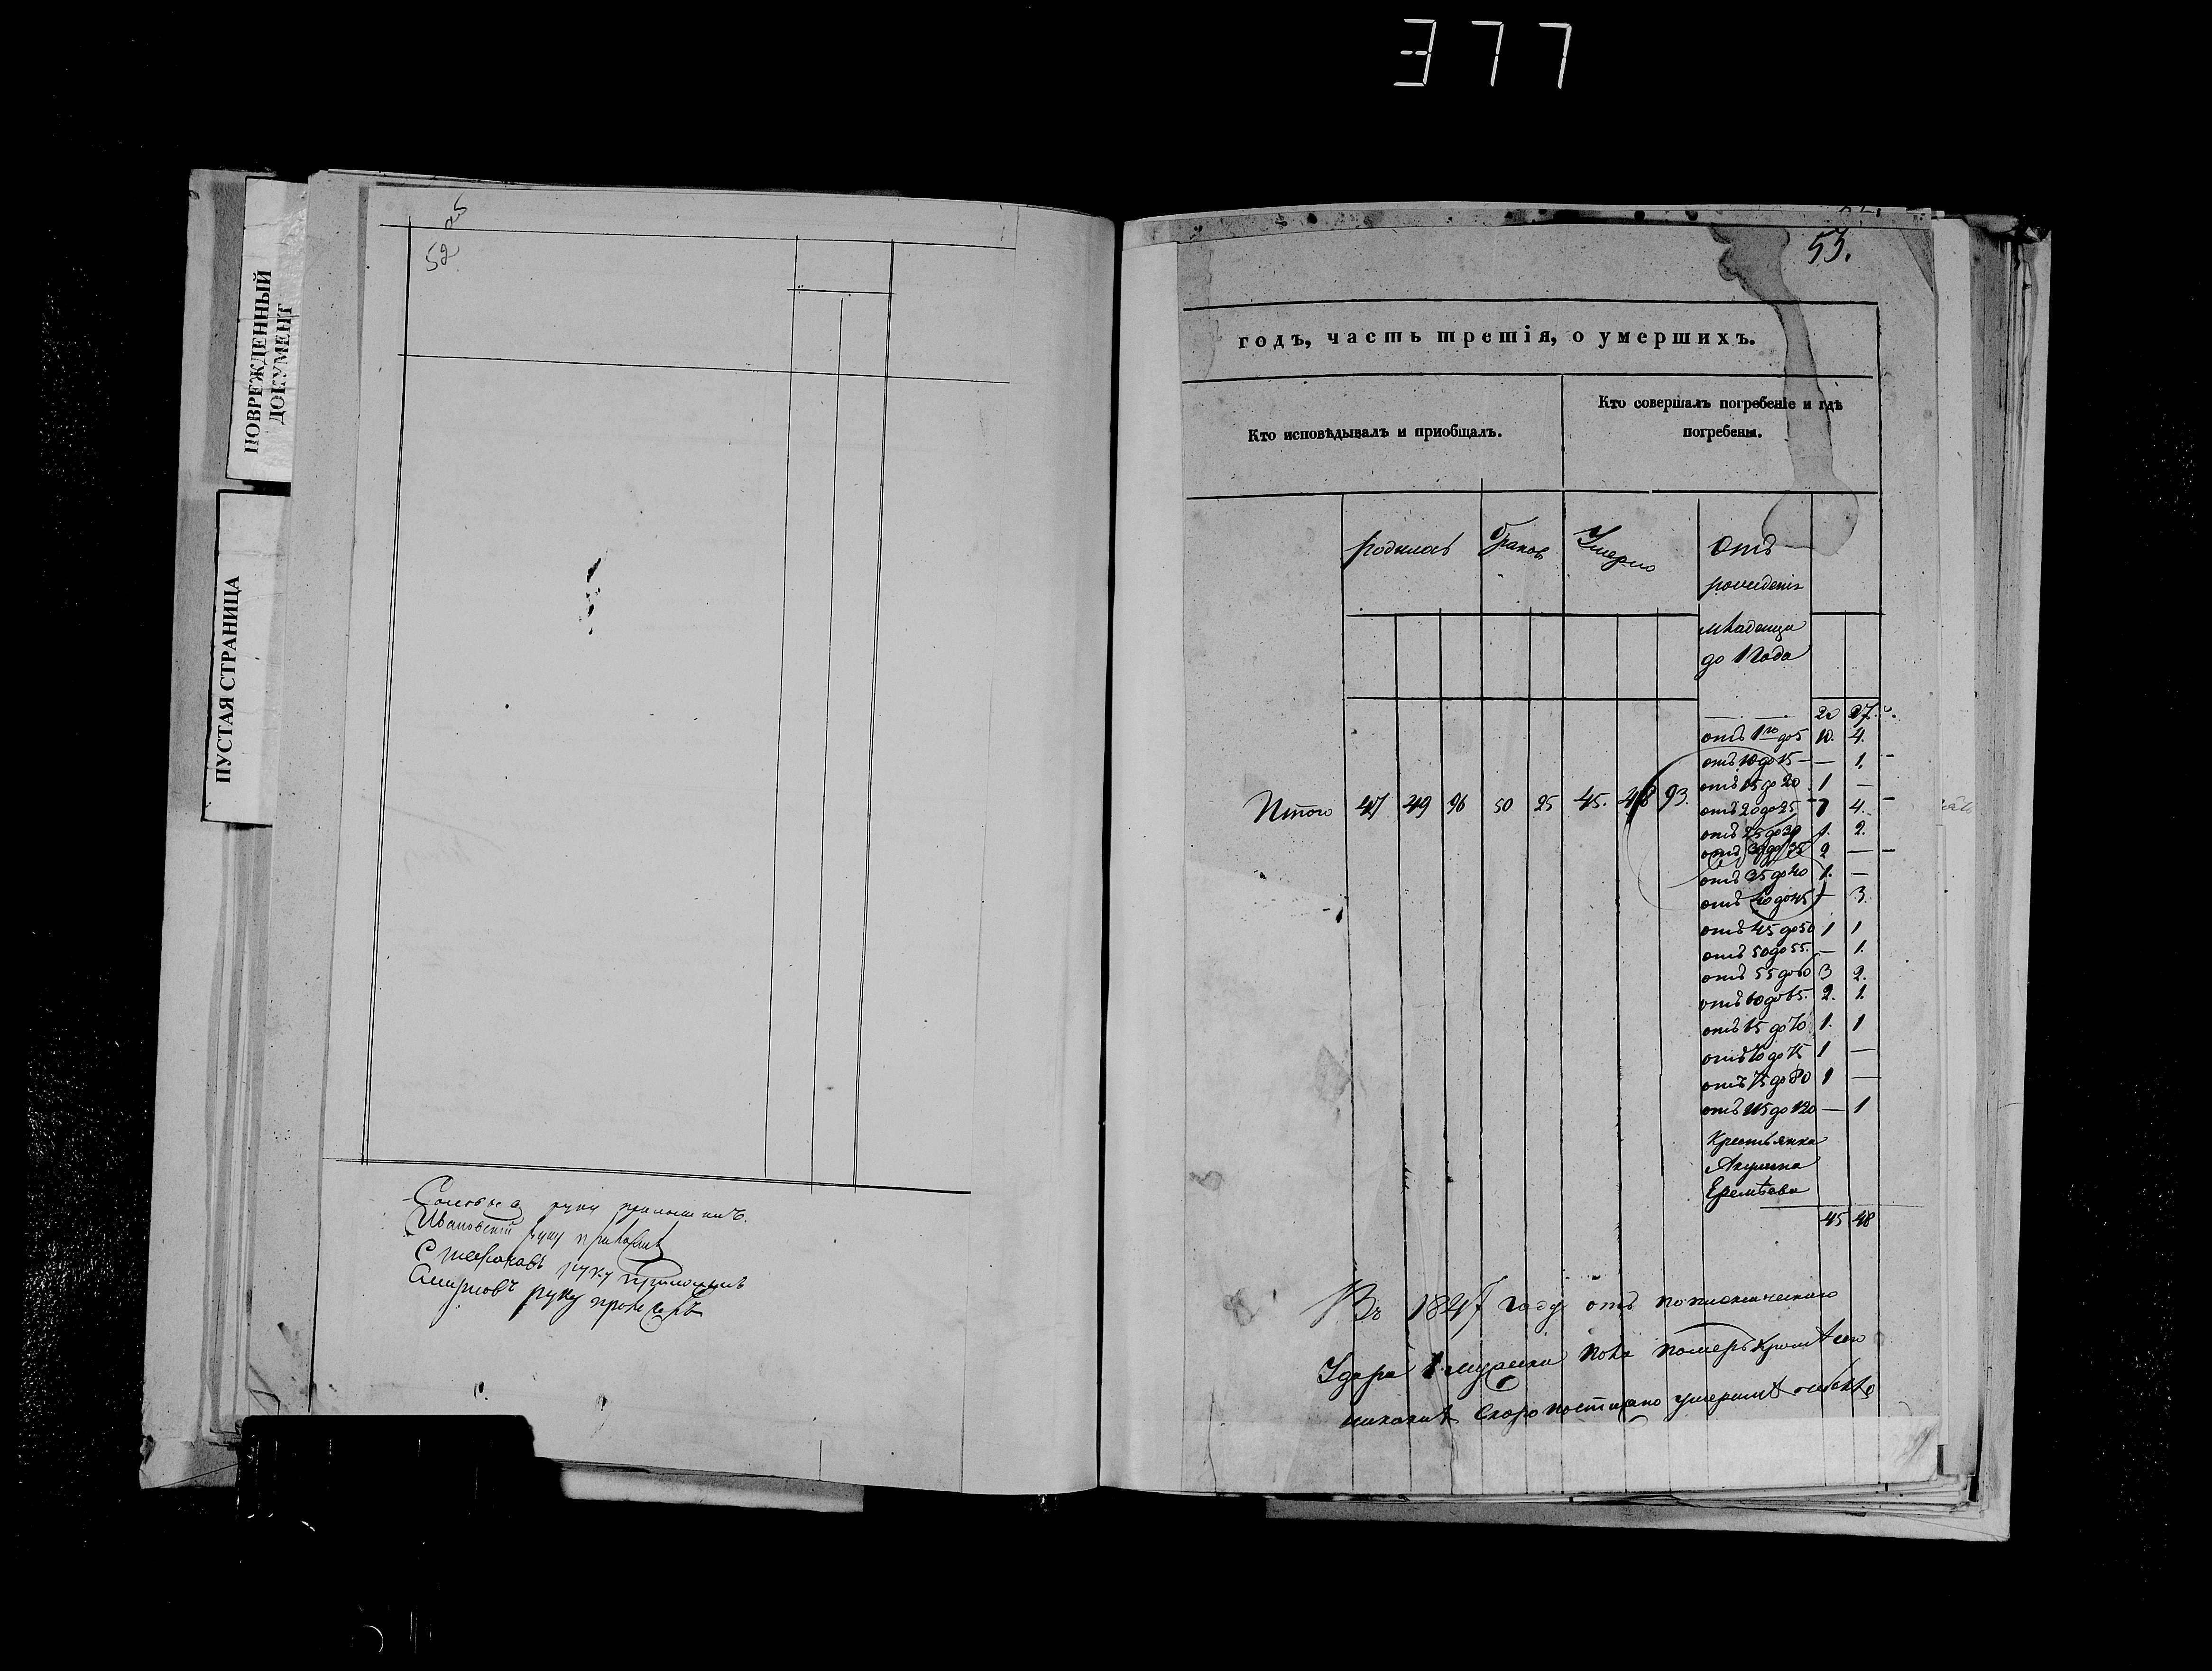 377
ПОВРЕЖДЕННЫЙ
ДОКУМЕНТ
ПУСТАЯ СТРАНИЦА
52
руку приложилъ.
Ивановскій руку приложилъ
руку приложилъ
Смирновъ руку приложилъ
53.
годъ, часть третія, о умершихъ.
Кто исповѣдывалъ и приобщалъ.
Кто совершалъ погребеніе и гдѣ
погребены.
родилось браковъ Умерло Отъ
рождения
младенца
до 1 года
20 27.
отъ 1го до 5 10. 4.
отъ 10 до 15 — — 1. —
отъ 15 до 20 1 —
Итого 47 49 96 50 25 45. 48 93.
отъ 20 до 25 4.
отъ 25 до 30 1. 2.
отъ 30 до 35 2 — —
отъ 35 до 40 1. —
отъ 40 до 45 — 3.
отъ 45 до 50 1 1
отъ 50 до 55. — 1.
отъ 55 до 60 3 2.
отъ 60 до 65. 2. 1.
отъ 65 до 70 1. 1
отъ 70 до 75 1 —
отъ 75 до 80 1 —
отъ 115 до 120 — 1
Крестьянка
Акулина
Еремѣева
45 48
Въ 1847 году отъ
Удара 1 мужска пола померъ кромѣ сего
никакихъ скоропостижно умершихъ